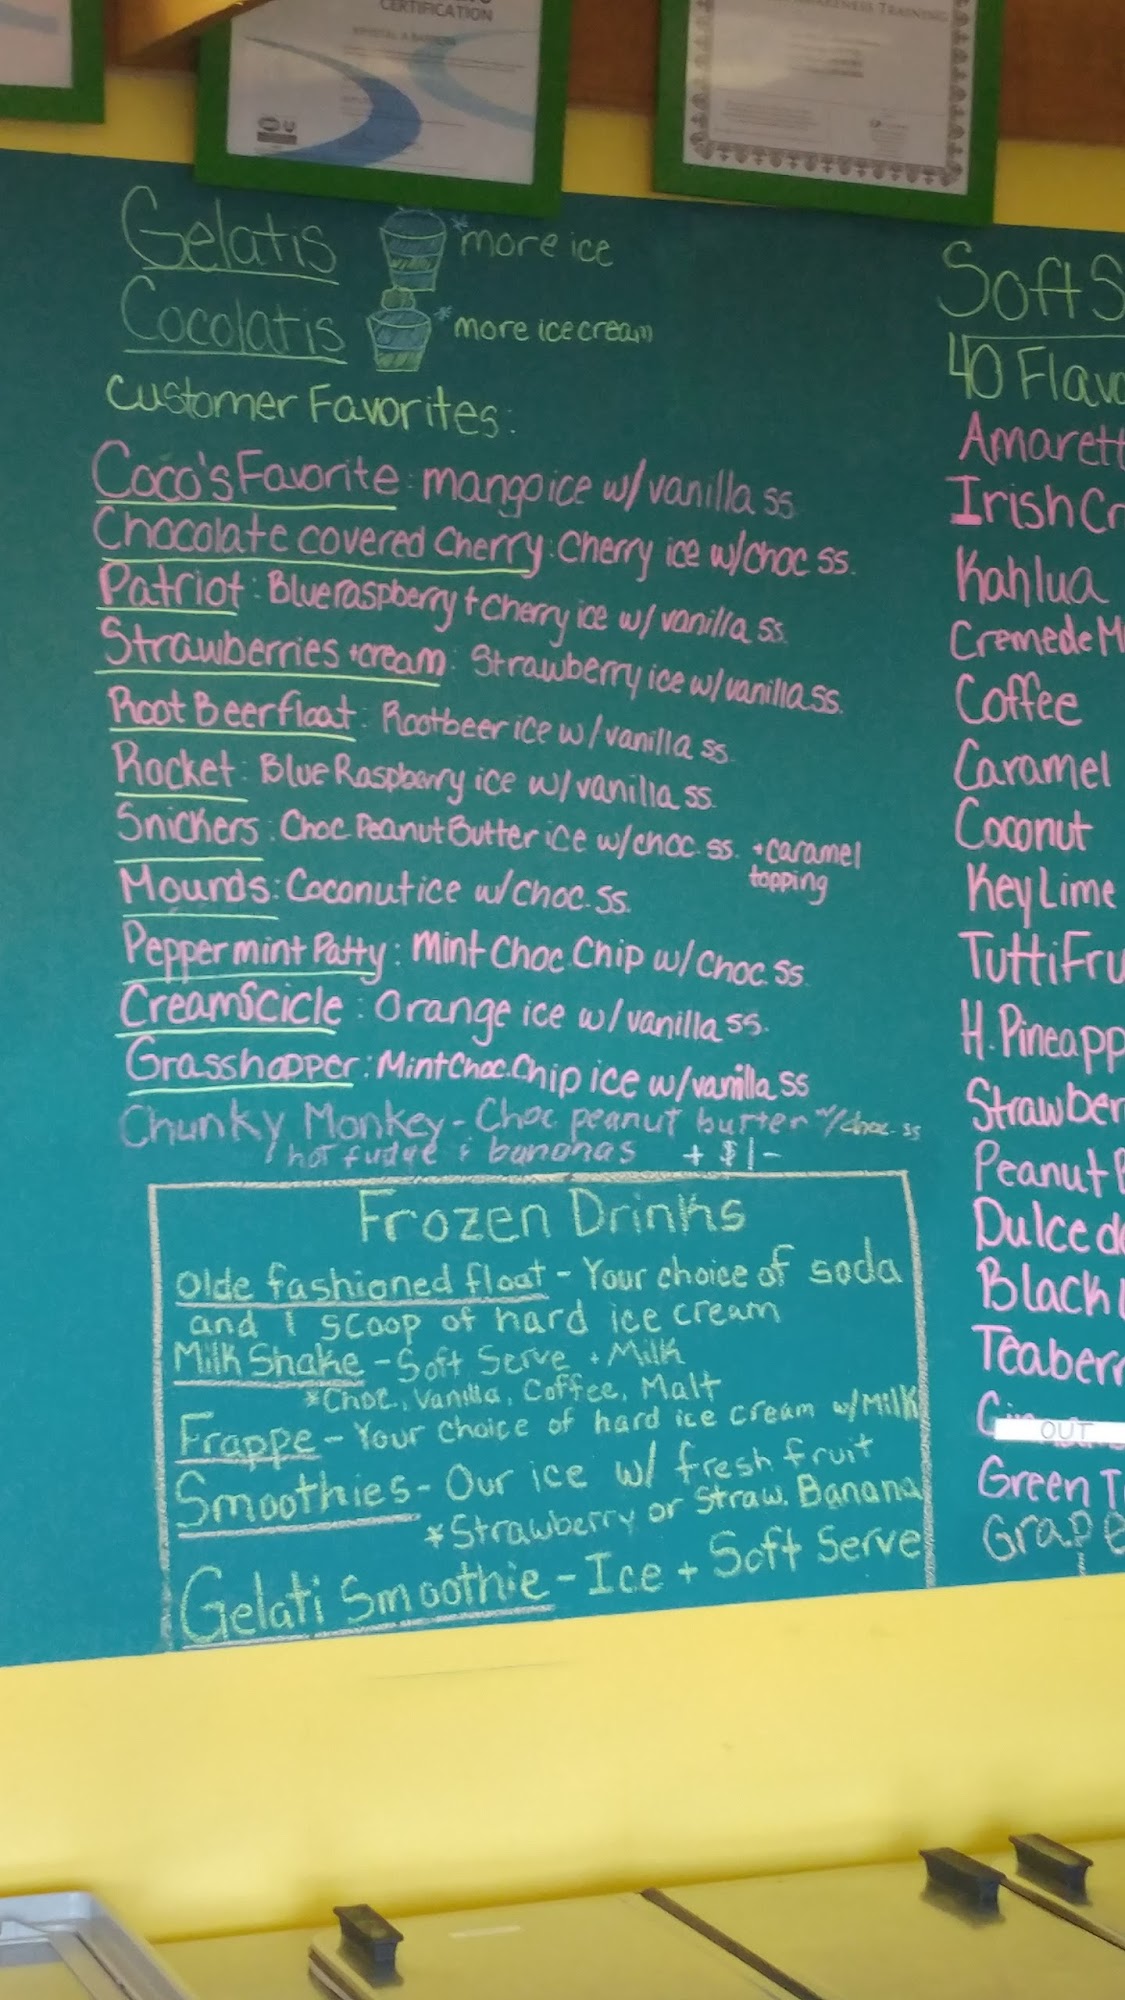 CERTIFICATION
AWARENESS TRAINING
Gelatis *more ice
Cocolatis *more ice cream
Customer Favorites:
Coco's Favorite: mango ice w/ vanilla ss.
Chocolate covered Cherry: Cherry ice w/choc ss.
Patriot: Blueraspberry + Cherry ice w/ vanilla ss.
Strawberries + cream: Strawberry ice w/ vanilla ss.
Root Beer float: Rootbeer ice w/ vanilla ss.
Rocket: Blue Raspberry ice w/ vanilla ss.
Snickers: Choc Peanut Butter ice w/choc. ss. + caramel
topping
Mounds: Coconut ice w/choc. ss.
Peppermint Patty: Mint Choc. Chip w/ choc. ss.
CreamScicle: Orange ice w/ vanilla ss.
Grasshopper: Mint Choc. Chip ice w/ vanilla ss
Chunky Monkey - Choc peanut butter w/choc. ss
hot fudge + bananas + $1-
Frozen Drinks
Olde fashioned float - Your choice of soda
and 1 scoop of hard ice cream
Milk Shake - Soft Serve + Milk
*Choc, Vanilla, Coffee, Malt
Frappe - Your choice of hard ice cream w/Milk
Smoothies - Our ice w/ fresh fruit
*Strawberry or Straw. Banana
Gelati Smoothie - Ice + Soft Serve
Soft S
40 Flavo
Amarett
Irish Cr
Kahlua
Cremede M
Coffee
Caramel
Coconut
Key Lime
Tutti Fru
H. Pineapp
Strawber
Peanut B
Dulce de
Black
Teaberr
OUT
Green T
Grape